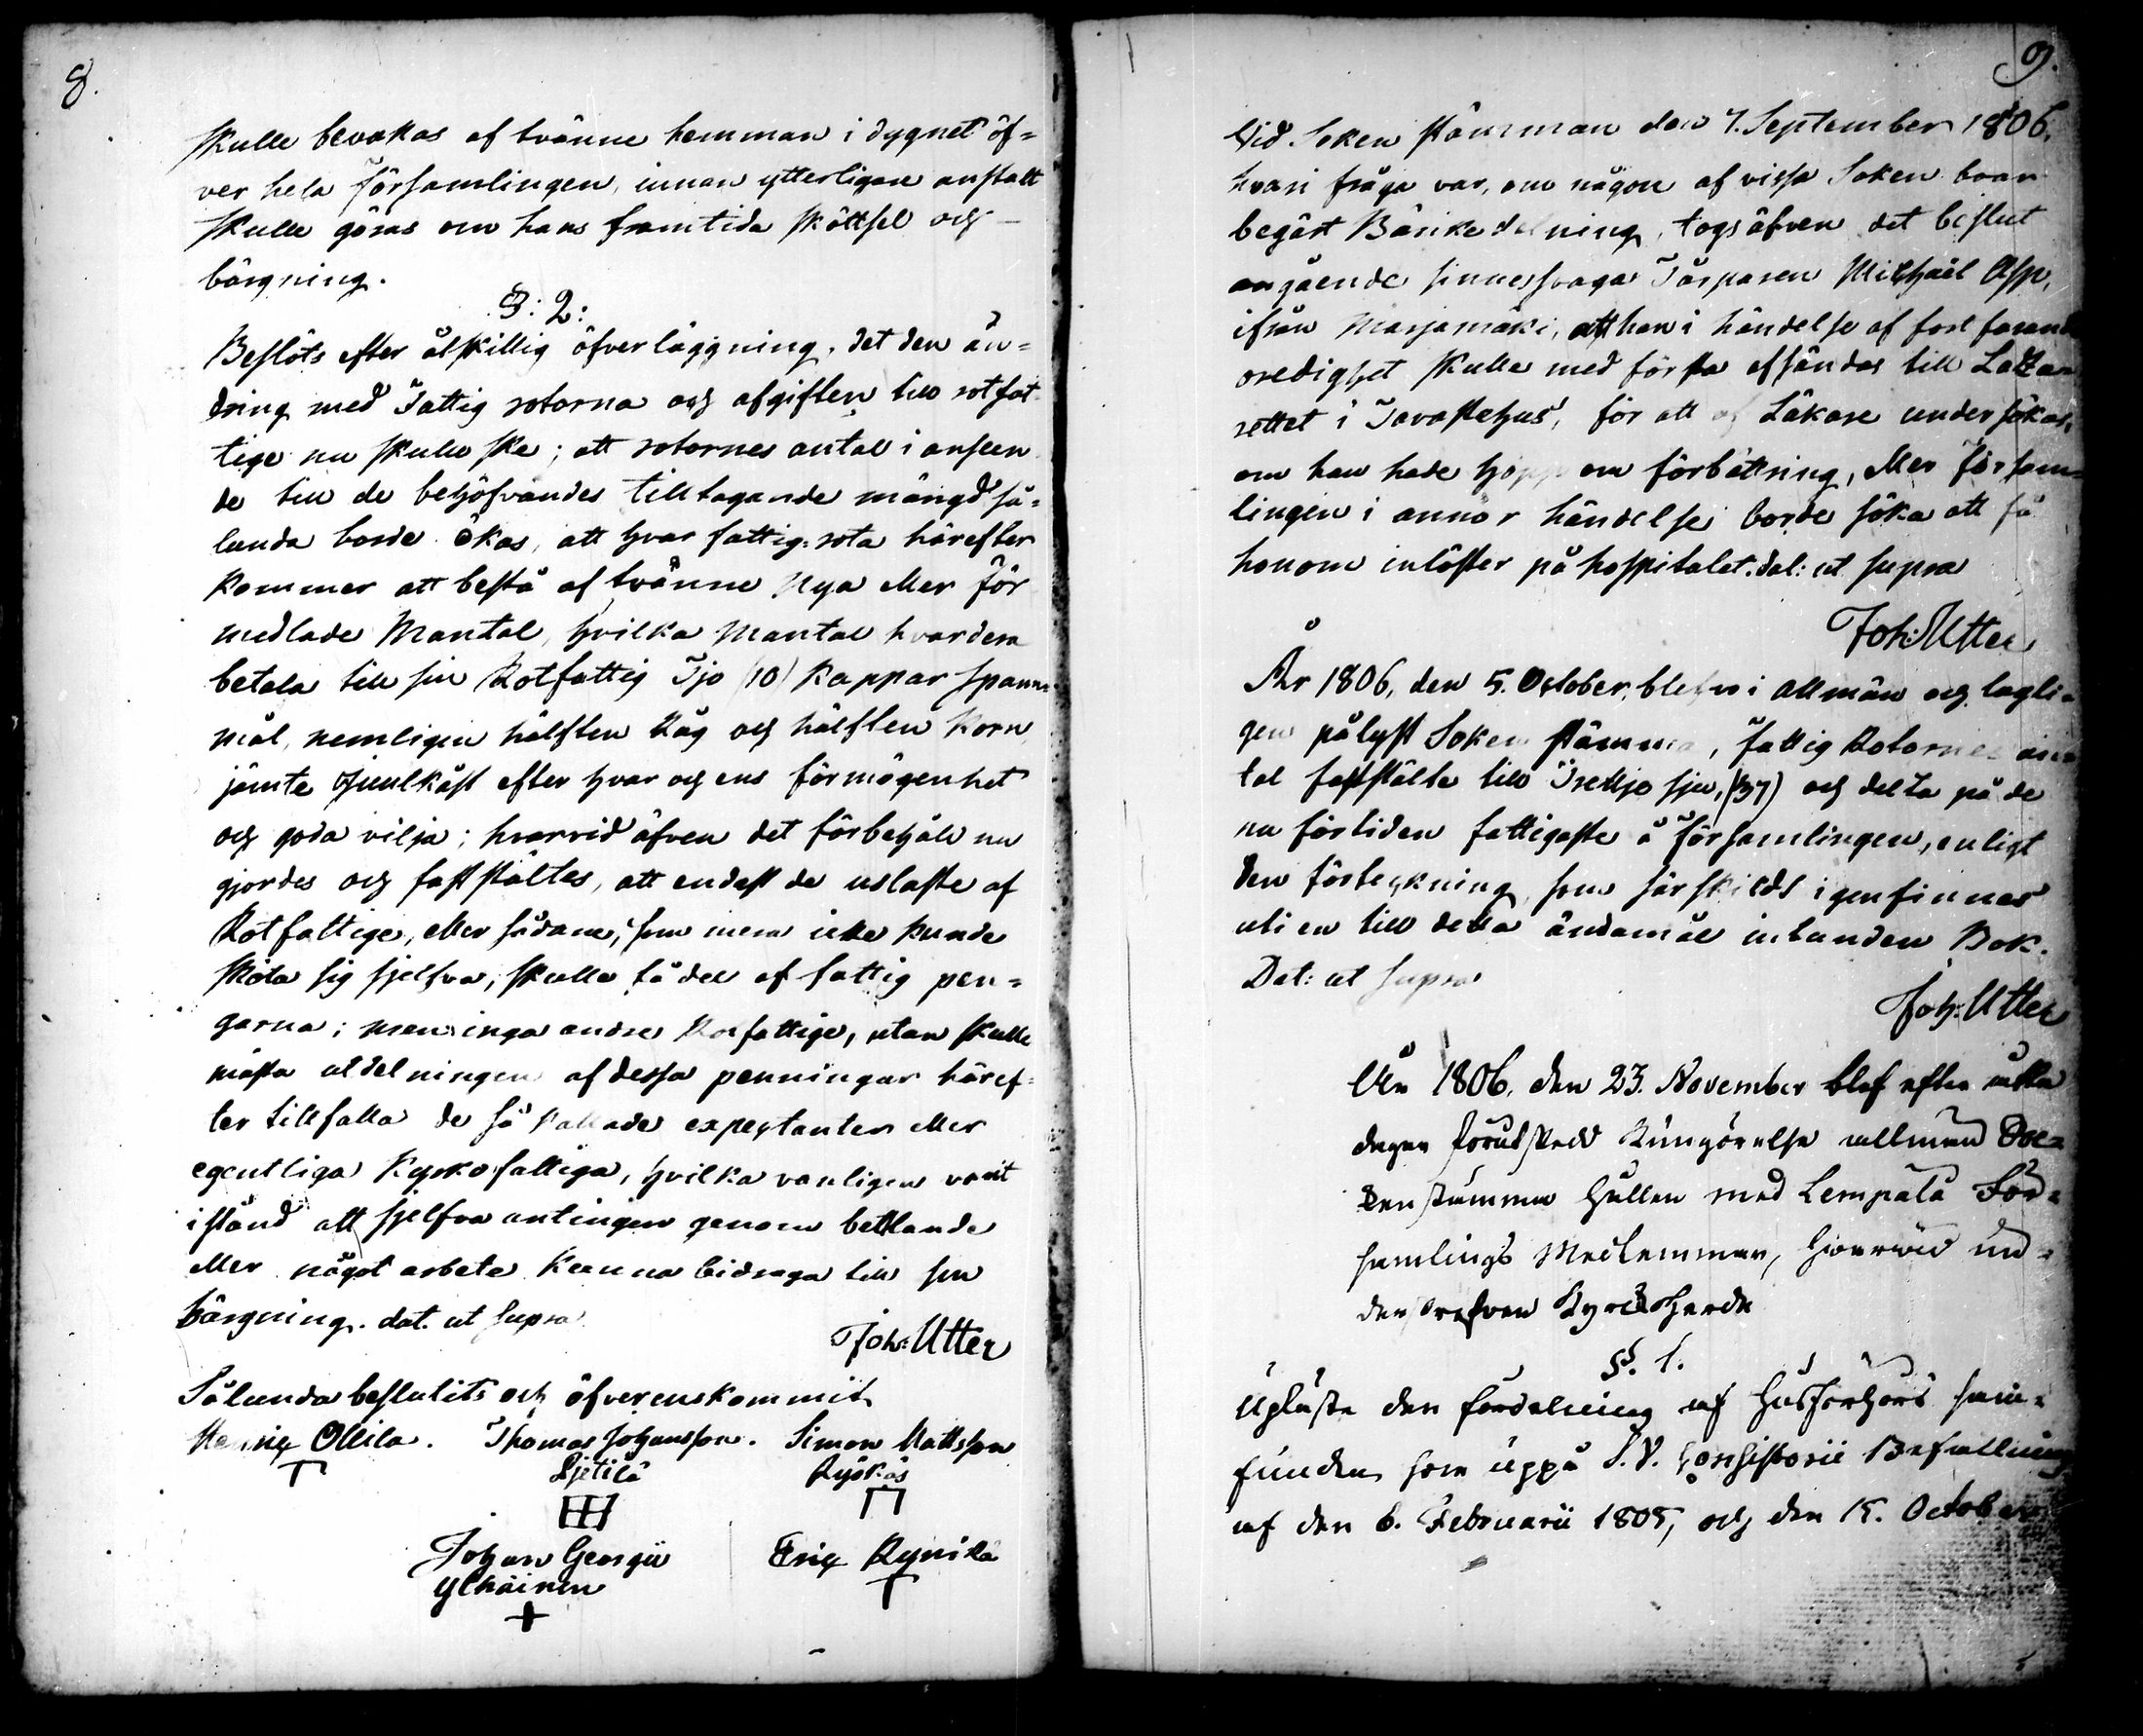 8.
skulle bevakas af tvänne hemman i dygnet öf=
ver hela Församlingen, innan ytterligare anstalt
skulle göras om hans framtida skötsel och
bärgning.
§: 2:
Beslöts efter åtskillig öfverläggning, det den än=
dring med Fattig rotorna och afgiften till rotfat
tige nu skulle ske; att rotornes antal i anseen
de till de behöfvandes tilltagande mängd så=
lunda borde ökas, att hvar fattig rota härefter
kommer att bestå af tvänne nya eller för
medlade Mantal, hvilka Mantal hvardera
betala till sin Rotfattig Tjo (10) kappar spann
mål, nemligen hälften Råg och hälften Korn
jämte Juulkåst efter hvar och ens förmögenhet
och goda vilja; hvarvid äfven det förbehåll nu
gjordes och fastställtes, att endast de uslaste af
Rotfattige, eller sådane, som icke kunde
sköta sig sjelfva, skulle få del af fattig pen=
garna; men inga andre Rotfattige, utan skulle
mästa utdelningen af dessa penningar häref=
ter tillfalla de så kallade expectanter eller
egentliga Kyrkofattiga, hvilka vanligen varit
istånd att sjelfva antingen genom bettlande
eller något arbete kunna bidraga till sin
bärgning. dat. ut supra
Joh: Utter
Sålunda beslutits och öfverenskommit
Ollila. Thomas Johansson. Simon Mattsson
Sjetilä Ryökäs
Johan Georgii Eric Rynilä
Ylhäinen
9.
Vid Soken stämman den 7. September 1806,
hvari fråga var, om någon af vissa Soken boar
begärt Bänkedelning, togs äfven det beslut
angående sinnessvaga Torparen Michaël Asp,
ifrån Marjamäki, att han i händelse af fortfarand
oredighet skulle med första afsändas till Lazza
rettet i Tavastehus, för att af Läkare undersökas,
om han hade hopp om förbättring, eller Försam=
lingen i annor händelse borde söka att få
honom inlöster på hospitalet. dat: ut supra
Joh: Utter
År 1806, den 5. October, blefvo i allmän och lagli=
gen pålyst Soken stämma, Fattig Rotornes an
tal faststälte till Trettjo sju, (37) och delta på de
nu förtiden fattigaste å Församlingen, enligt
den förtekning som särskildt igenfinnes
uti en till detta ändamål inbunden Bok.
Dat: ut supra
Joh: Utter
År 1806. den 23. November blef efter åtta
dagar förutskedd Kungörelse allmän Soc=
kenstämma hållen med Lempälä För=
samlings Medlemmar, hvarvid un=
derskrefven Kyrckoherde
§. 1.
Upläste den fördelning af Husförhörs sam=
funden som uppå S. V. Consistorii Befallning
af den 6. Februarii 1805, och den 15. October